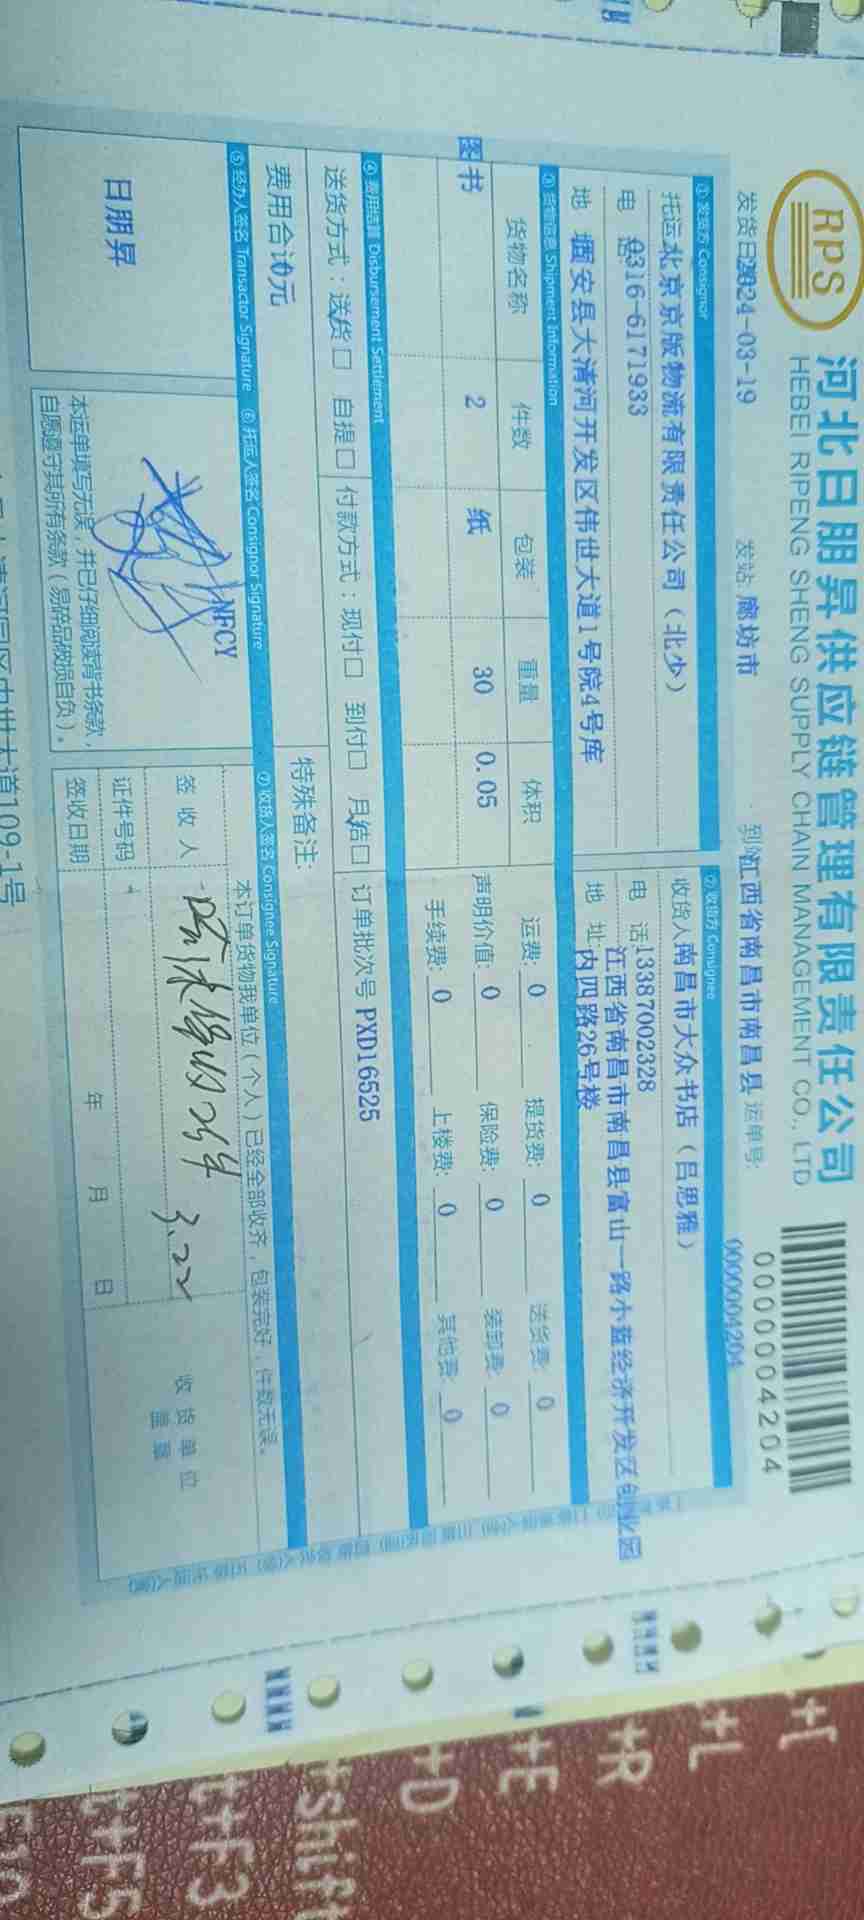 RPS
河北日朋昇供应链管理有限责任公司
HEBEI RIPENG SHENG SUPPLY CHAIN MANAGEMENT CO., LTD
0000004204
发货日期 2024-03-19 发站 廊坊市 到站 江西省南昌市南昌县 运单号: 0000004204
① 发货方 Consignor
托运 北京京版物流有限责任公司（北少）
电 话 0316-6171933
地 址 固安县大清河开发区伟世大道1号院4号库
② 收货方 Consignee
收货人 南昌市大众书店（吕思雅）
电 话 13387002328
地 址 江西省南昌市南昌县富山一路小蓝经济开发区创业园
内四路26号楼
③ 货物信息 Shipment Information
货物名称 件数 包装 重量 体积
图书 2 纸 30 0.05
运费: 0 提货费: 0 送货费: 0
声明价值: 0 保险费: 0 装卸费: 0
手续费: 0 上楼费: 0 其他费: 0
④ 费用结算 Disbursement Settlement
送货方式：送货□ 自提□ 付款方式：现付□ 到付□ 月结□ 订单批次号 PXD16525
费用合计 0元
特殊备注:
⑤ 经办人签名 Transactor Signature ⑥ 托运人签名 Consignor Signature ⑦ 收货人签名 Consignee Signature
日朋昇
NFCY
本运单填写无误，并已仔细阅读背书条款，
自愿遵守其所有条款（易碎品破损自负）。
本订单货物我单位（个人）已经全部收齐，包装完好，件数无误。
签 收 人
2件 3.22
证件号码
签收日期 年 月 日
收货单位
盖章
道109-1号
+L
+R
+E
+D
+shift
t+F3
t+F5